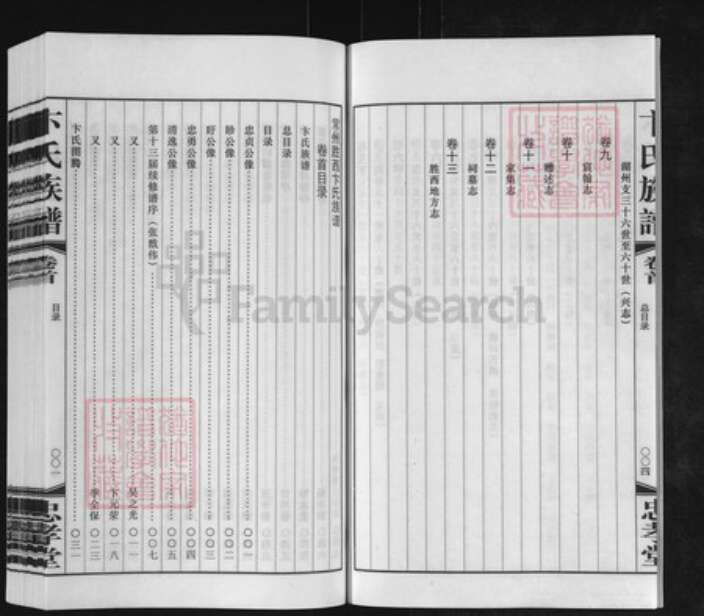 卞氏族譜
卷首
总目录
〇〇四
忠孝堂
湖州支三十六世至六十世（兴志）
卷九
宸翰志
卷十
赠述志
卷十一
家集志
卷十二
祠墓志
卷十三
胜西地方志
常州胜西卞氏族谱
卷首目录
卞氏族谱
总目录
目录
忠贞公像 〇〇一
眕公像 〇〇二
盱公像 〇〇三
忠勇公像 〇〇四
清逸公像 〇〇五
第十三届续修谱序（张戬伟） 〇〇七
又 吴之光 〇一一
又 卞元荣 〇一八
又 李全保 〇二三
卞氏图腾 〇三一
卞氏族譜
卷首
目录
〇〇一
忠孝堂
FamilySearch